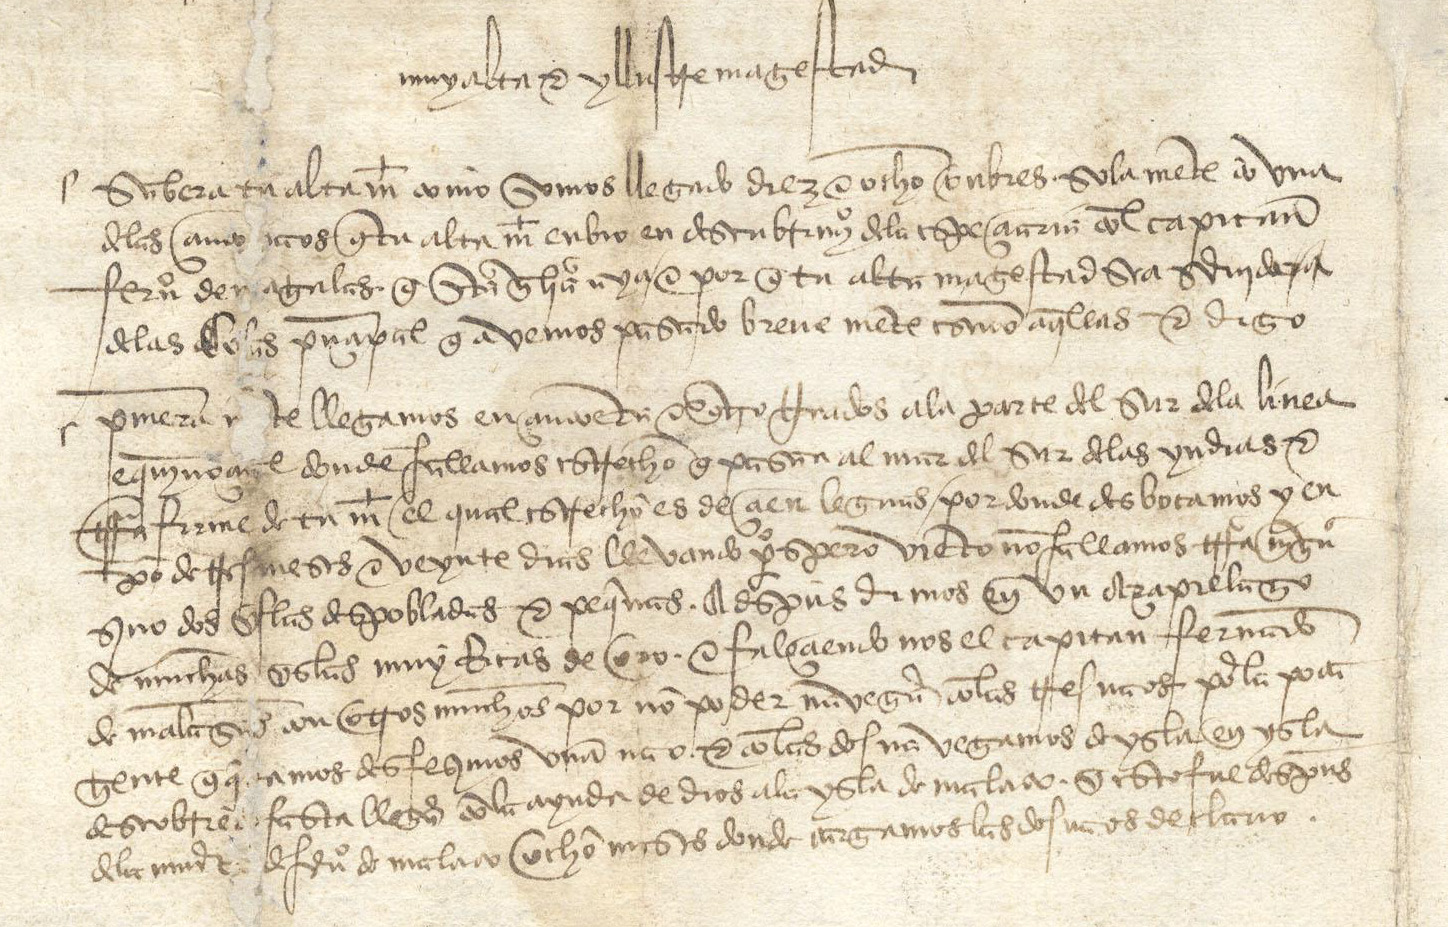 muy alta e yllustre magestad
Sabera tu alta mt como somos llegado diez e ocho onbres solamente co una
delas cinco naos q tu alta mt enbio en descubrimyo dela espeçiaria col capitan
fernº de magalas q santa gla aya e por q tu alta magestad sea sabidor
delas cosas prinçipal q avemos pasado breve mente escrivo aqllas e digo
primera mente llegamos en çincoenta e quatro grados ala parte del sur dela linea
equinoçial donde fallamos estrecho q pasava al mar del sur delas yndias e
trra firme de tu mt el qual estrecho es de çien leguas por donde desbocamos y en
tpo de tres meses e veynte dias llevando prospero viento no fallamos trra nyguº
syno dos yslas despobladas e peqnas. A despues dimos en un arçapielago
de muchas yslas muy rricas de oro. e falleçiendo nos el capitan fernando
de magalas con otros muchos por no poder navegar colas tres naos por la poca
gente q qdamos desfezimos una nao. e colas dos navegamos de ysla en ysla
descobrendo fasta llegar cola ayuda de dios ala ysla de maluco. q esto fue despues
dela muerte de fernº de magalas ocho meses donde cargamos las dos naos de clavo.